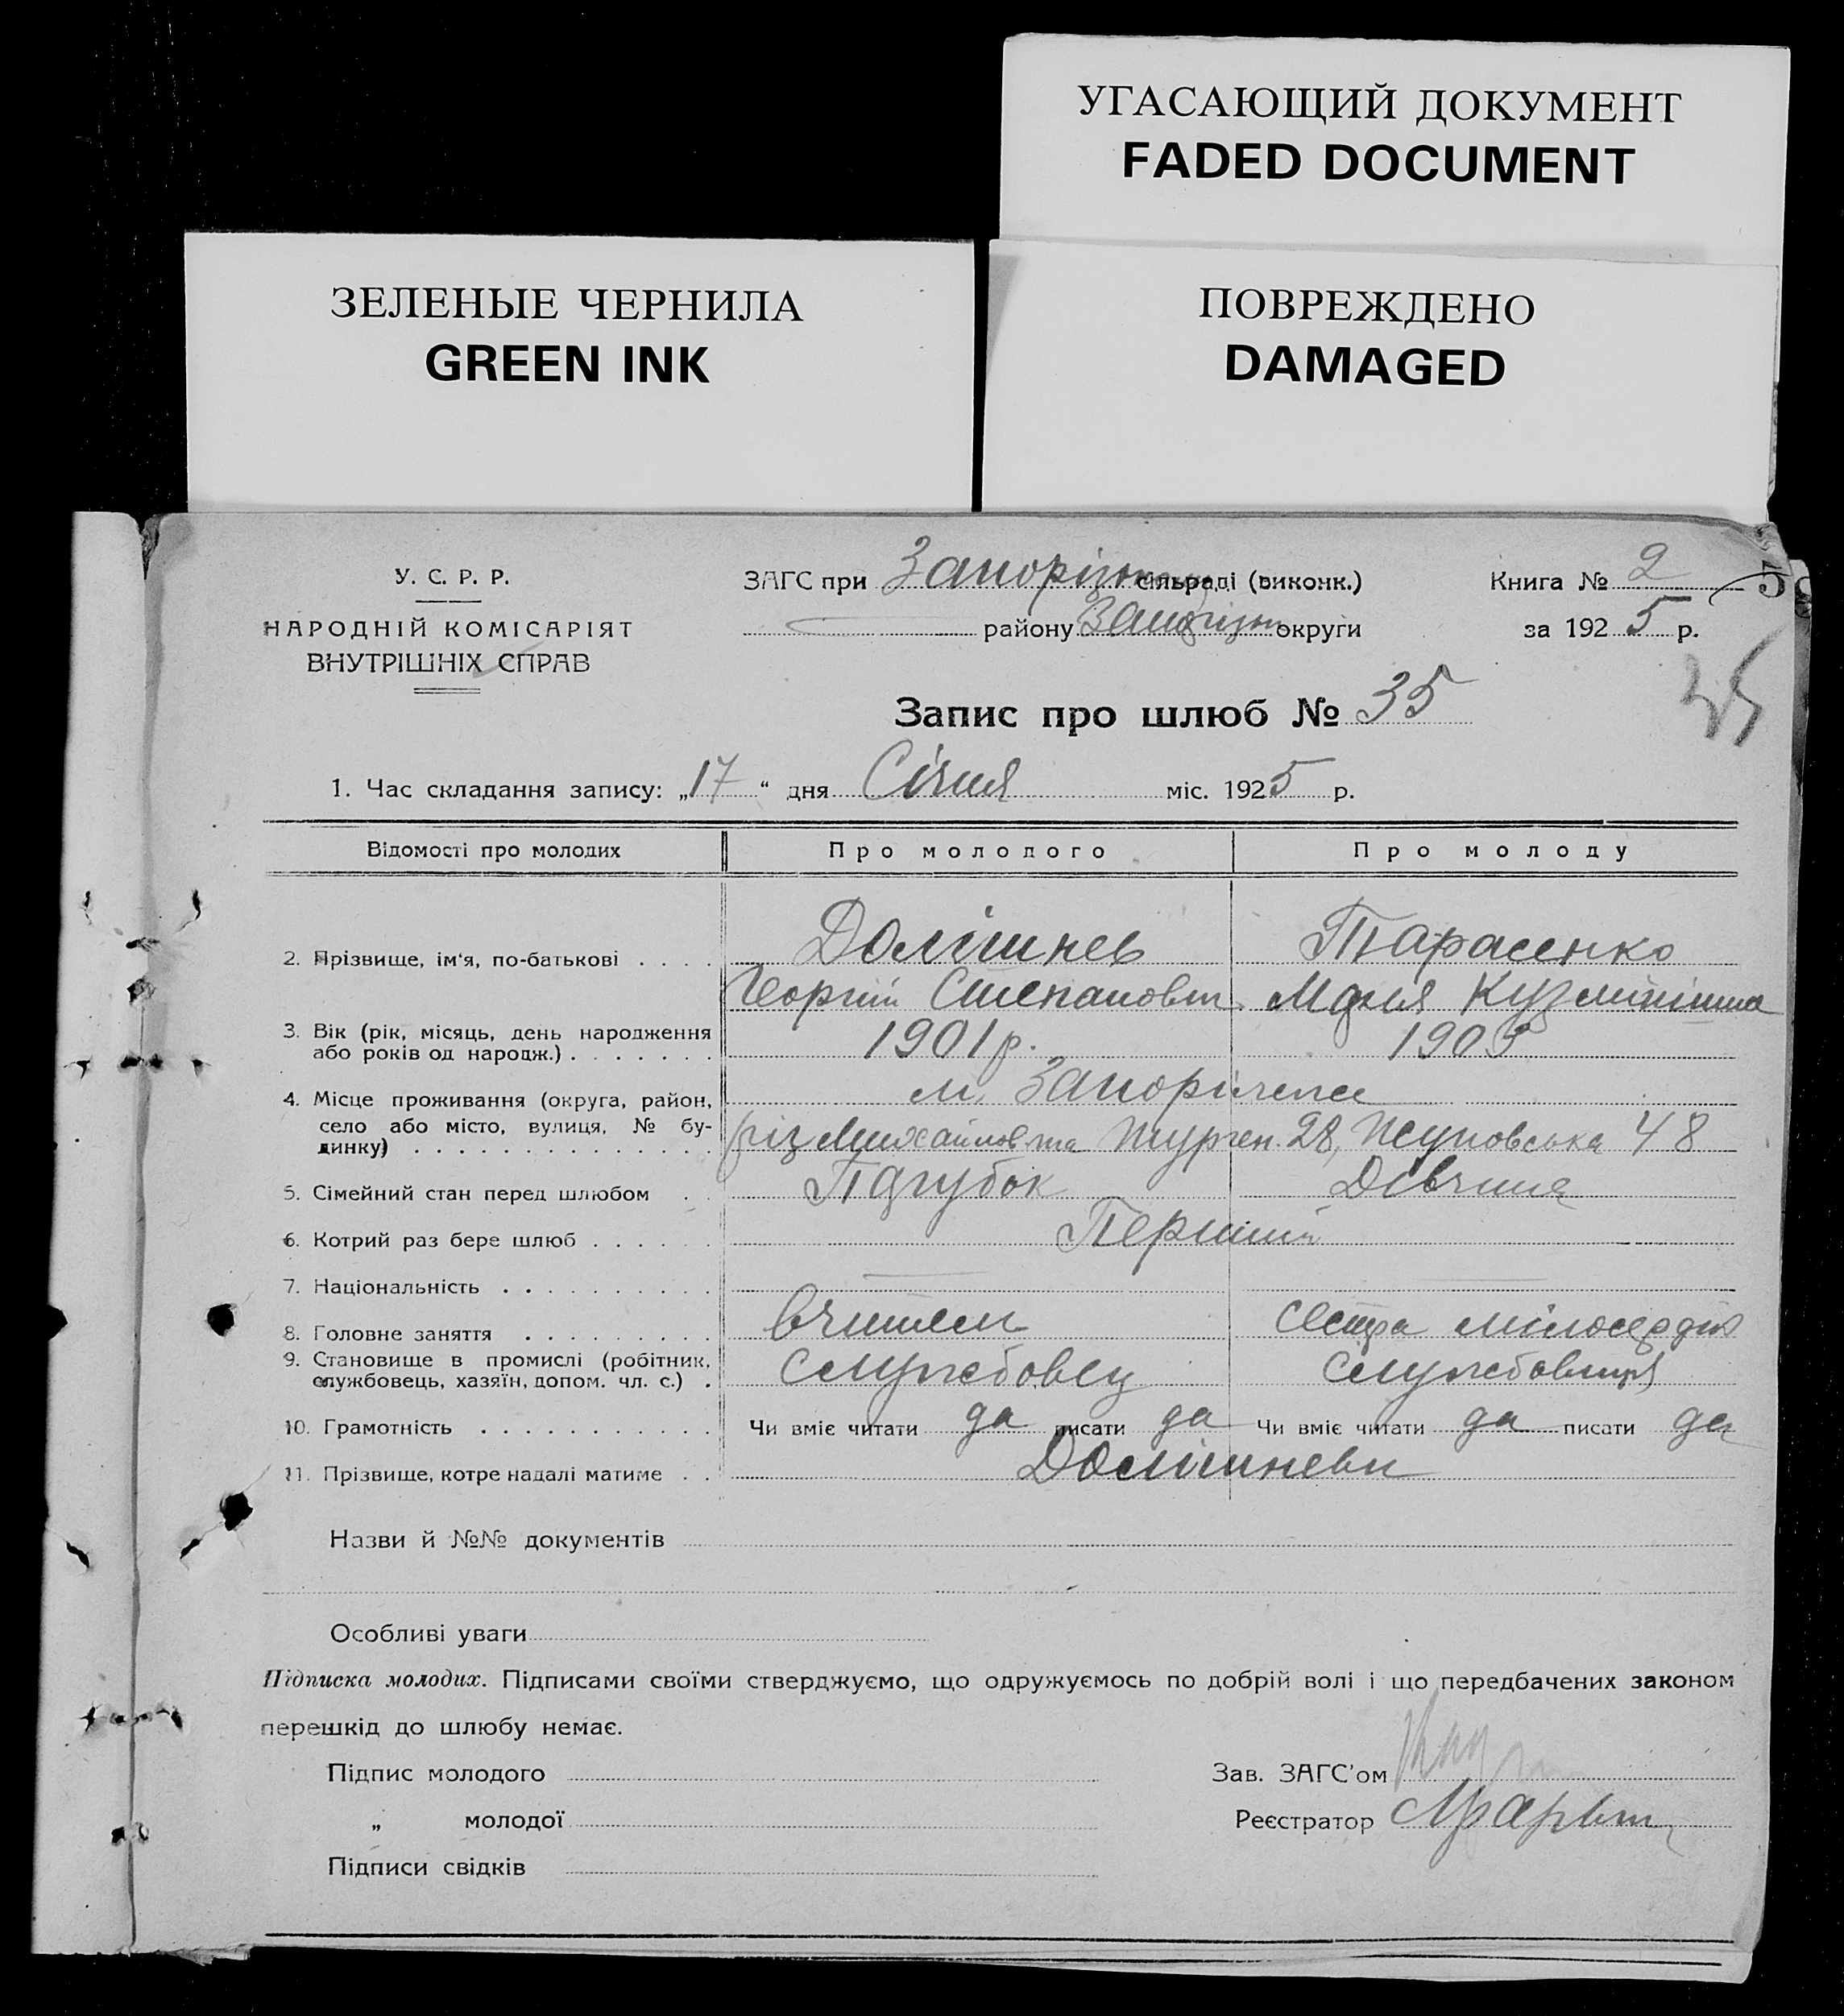 УГАСАЮЩИЙ ДОКУМЕНТ
FADED DOCUMENT
ЗЕЛЕНЫЕ ЧЕРНИЛА
GREEN INK
ПОВРЕЖДЕНО
DAMAGED
У. С. Р. Р.
НАРОДНІЙ КОМІСАРІЯТ
ВНУТРІШНІХ СПРАВ
ЗАГС при сільраді (виконк.)
району округи
Книга № 2
за 1925 р.
Запис про шлюб № 35
35
1. Час складання запису: „17“ дня Січня міс. 1925 р.
Відомості про молодих Про молодого Про молоду
2. Прізвище, ім'я, по-батькові . . . . Долішнев Тарасенко
Георгій Степанович Кузмінішна
3. Вік (рік, місяць, день народження
або років од народж.) . . . . . . . 1901 р. 1905
4. Місце проживання (округа, район,
село або місто, вулиця, № будинку) . . . . . . . . . . . . . . м. Запоріжже
ріг 28, Жуковська 48
5. Сімейний стан перед шлюбом . . Парубок Дівчина
6. Котрий раз бере шлюб . . . . . . Перший
7. Національність . . . . . . . . . . — —
8. Головне заняття . . . . . . . . . вчитель сестра мілосердія
9. Становище в промислі (робітник,
службовець, хазяїн, допом. чл. с.) . Службовец Службовиця
10. Грамотність . . . . . . . . . . . Чи вміє читати да писати да Чи вміє читати да писати да
11. Прізвище, котре надалі матиме . . Долішневи
Назви й №№ документів
Особливі уваги
Підписка молодих. Підписами своїми стверджуємо, що одружуємось по добрій волі і що передбачених законом
перешкід до шлюбу немає.
Підпис молодого
Зав. ЗАГС'ом
„ молодої
Реєстратор
Підписи свідків